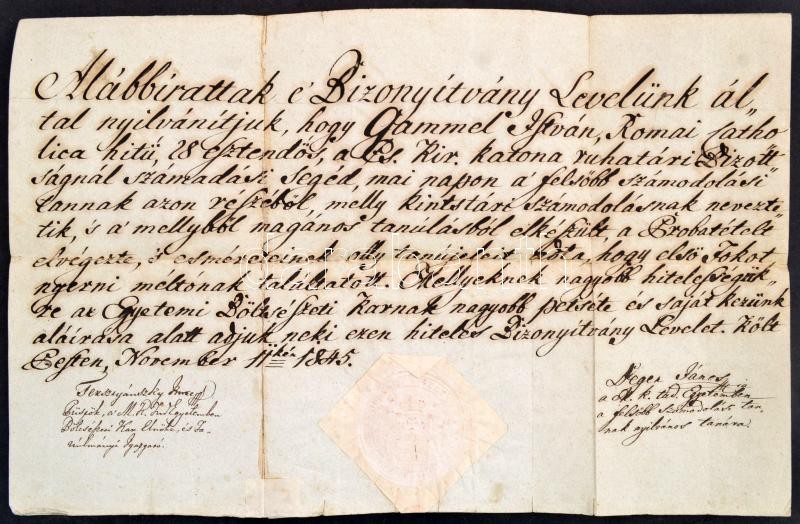 Alábbirattak e' Bizonyítvány Levelünk ál„
tal nyilvánítjuk, hogy Gammel István, Romai catho
lica hitü, 28 esztendős, a Cs. Kir. katona ruhatári Bizott
ságnál számadási Segéd, mai napon a' felsőbb számodolási
tannak azon részéből, melly kintstári számodolásnak nevezte
tik, 's a' mellyből magános tanúlásból elkészült, a' Probatételt
elvégezte, 's esméreteinek olly tanujeleit adta, hogy első Fokot
nyerni méltónak találtatott. Mellyeknek nagyobb hitelességük„
re az Egyetemi Bölcsészeti Karnak nagyobb petséte és saját kezünk
aláirása alatt adjuk neki ezen hiteles Bizonyítvány Levelet. Költ
Pesten, November 11ikén 1845.
Püspök, a' M. K. Tud. Egyetemben
Bölcsészeti Kar Elnöke, és Ta„
nulmányi Igazgató.
Reger János
a' M. k. tud. Egyetemben
a' felsőbb számodolási tan„
nak nyilvános tanára.